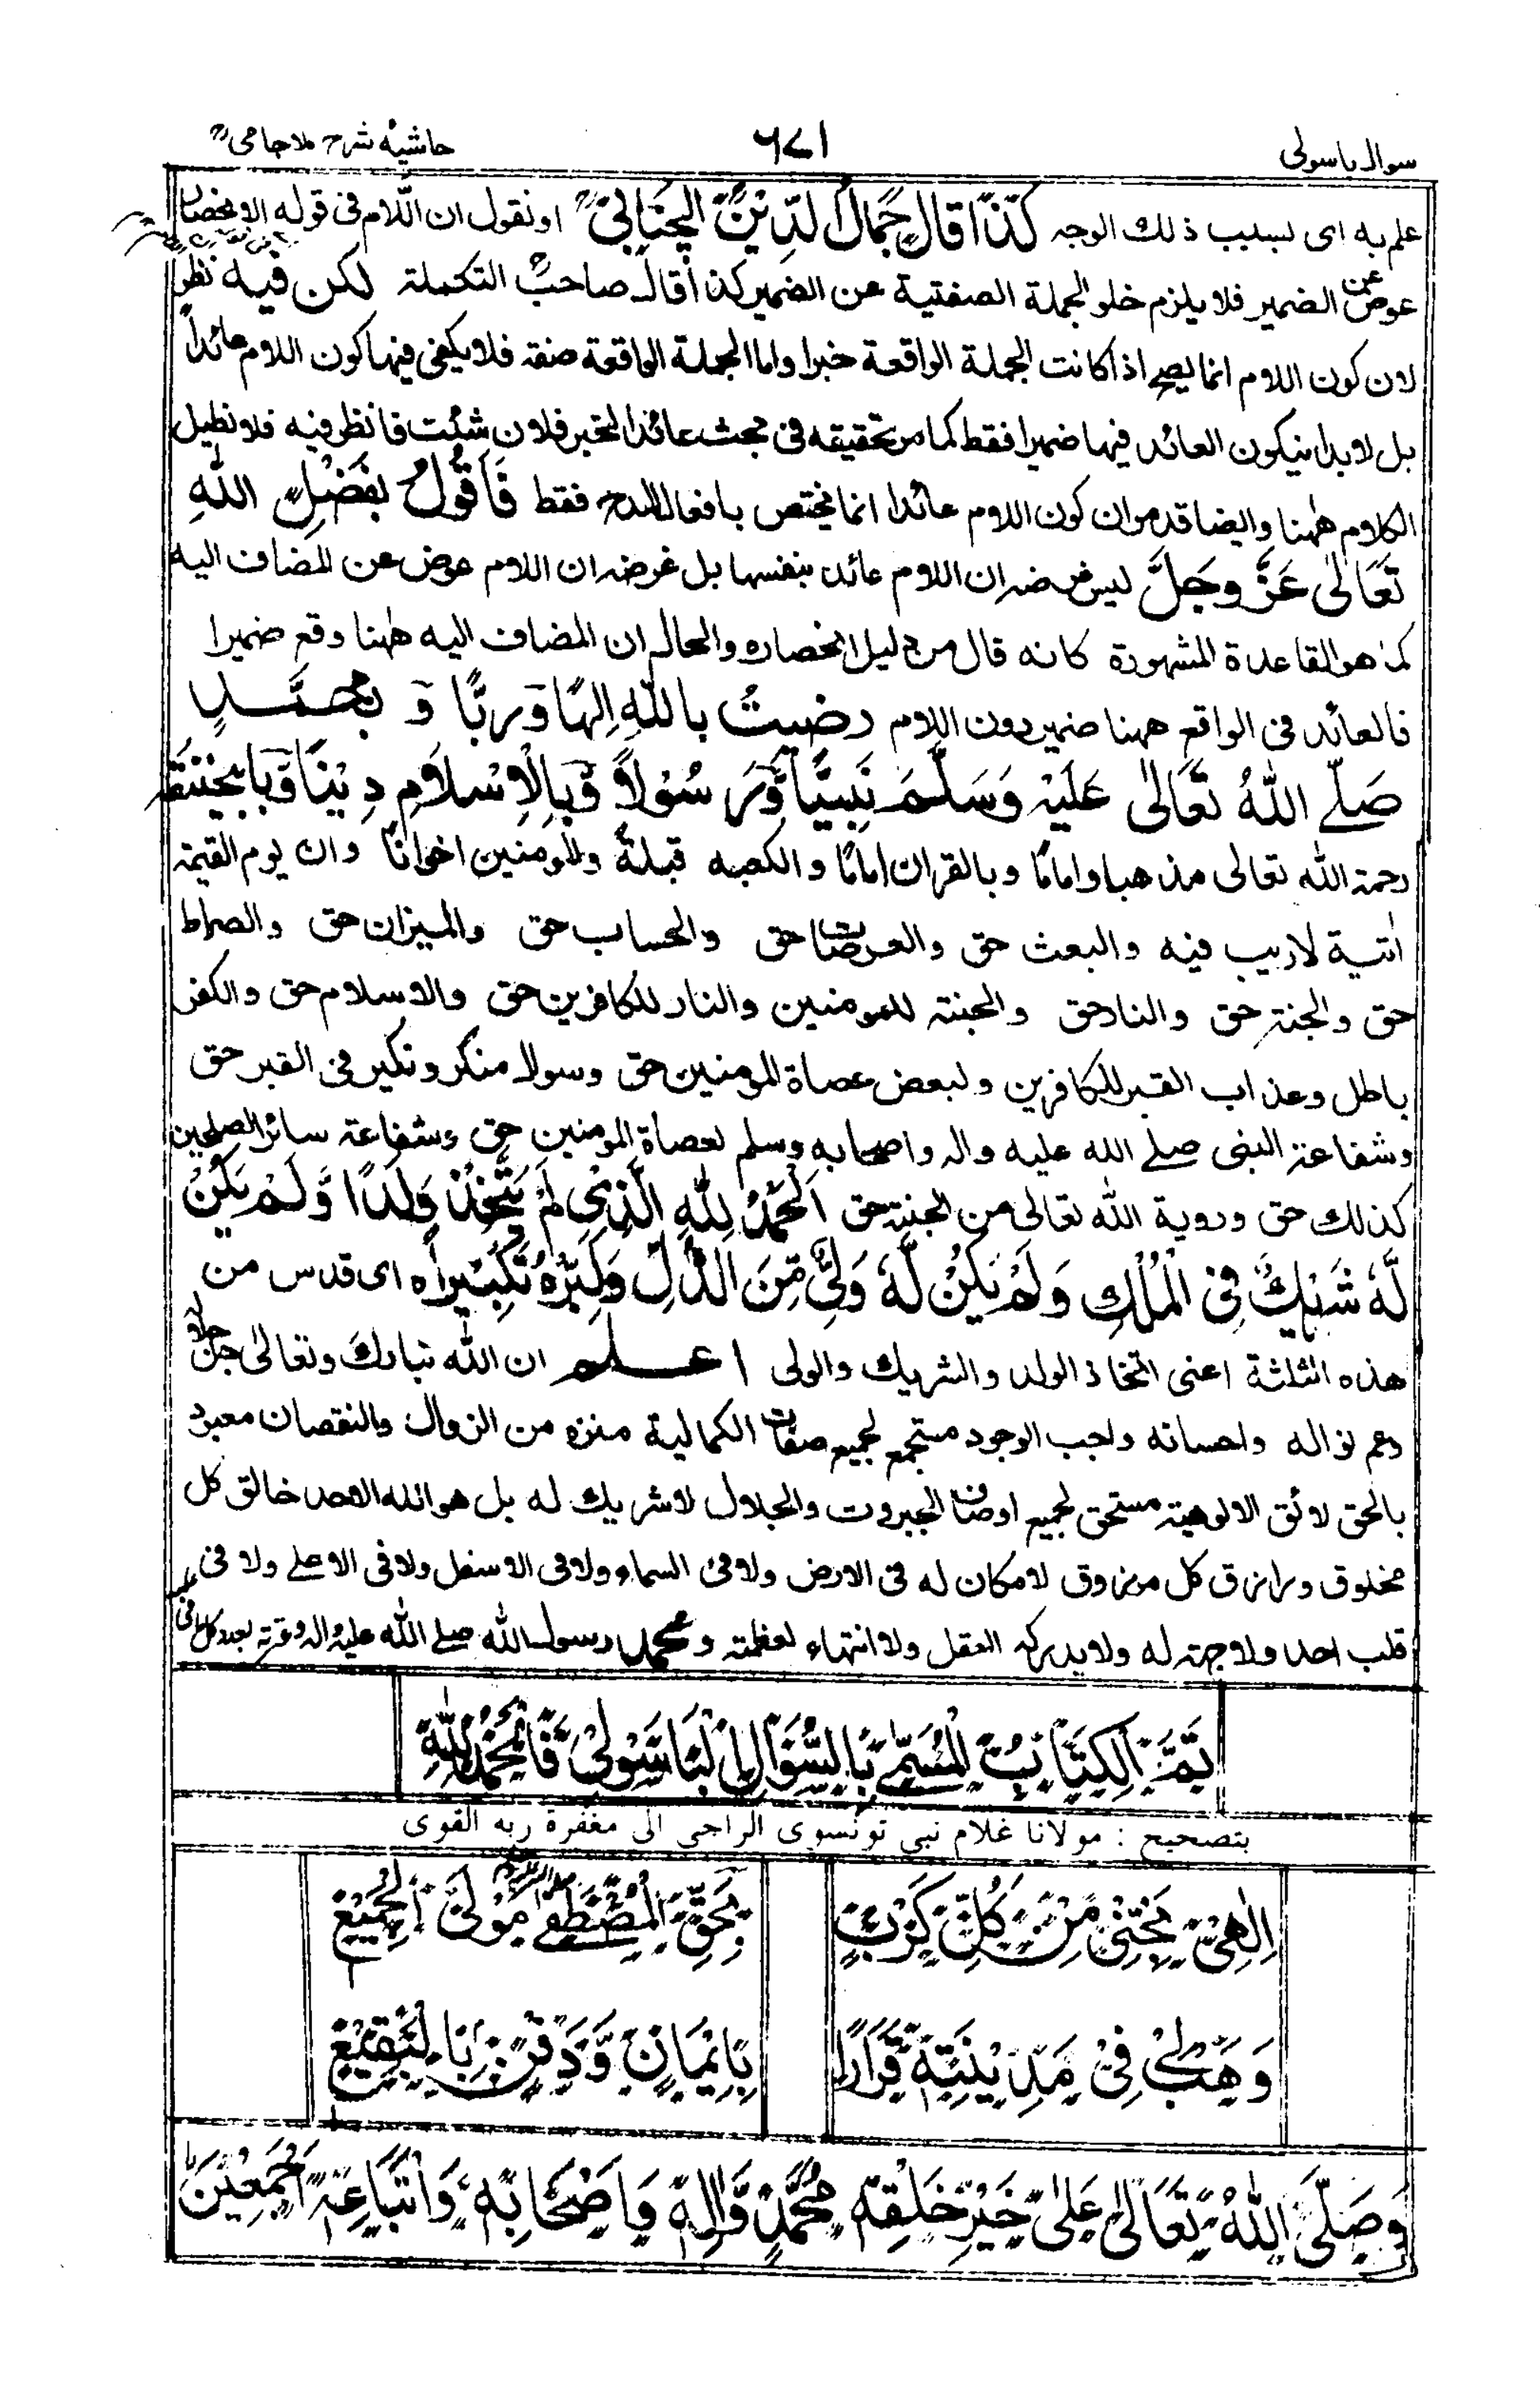 سوال باسولی ٦٧١ حاشیه شرح ملا جامی
علم به ای بسبب ذلك الوجه كَذَا قَالَ جَمَالُ الدِّيْنِ الْچَنَابِيُّ او نقول ان اللام فی قوله الانحصار
عوض عن الضمير فلا يلزم خلو الجملة الصفتية عن الضمير كذا قال صاحب التكملة لكن فيه نظر
لان كون اللام انما يصح اذا كانت الجملة الواقعة خبرا واما الجملة الواقعة صفة فلا يكفی فيها كون اللام عائداً
بل لابد ان يكون العائد فيها ضميرا فقط كما مر تحقيقه فی مبحث عائد الخبر فلان شئت فانظر فيه فلا نطيل
الكلام ههنا وايضا قد مر ان كون اللام عائدا انما يختص بافعال المدح فقط فَاَقُولُ بِفَضْلِ اللهِ
تَعَالٰی عَزَّ وجَلَّ ليس غرضه ان اللام عائد بنفسها بل غرضه ان اللام عوض عن المضاف اليه
كما هو القاعدة المشهورة كانه قال من دليل انحصاره والحال ان المضاف اليه ههنا وقع ضميرا
فالعائد فی الواقع ههنا ضمير دون اللام رضيتُ باللهِ اِلٰهًا وَّرَبًّا وَّ بمُحَمَّدٍ
صَلَّے اللهُ تَعَالٰی عَلَيْهِ وَسَلَّمَ نَبِيًّا وَّرَسُوْلاً وَّبِالْاِسْلَامِ دِيْنًا وَّبَابِیْ حَنِيْفَةَ
رحمة الله تعالی مذهبا واماما وبالقران امامًا والكعبه قبلةً وللمومنين اخوانًا وان يوم القيمة
اتية لاريب فيه والبعث حق والعرصات حق والحساب حق والميزان حق والصراط
حق والجنة حق والنار حق والجنة للمومنين والنار للكافرين حق والاسلام حق والكفر
باطل وعذاب القبر للكافرين ولبعض عصاة المومنين حق وسوال منكر ونكير فی القبر حق
وشفاعة النبی صلے الله عليه واله واصحابه وسلم لعصاة المومنين حق وشفاعة سائر الصلحين
كذلك حق وروية الله تعالی من الجنة حق اَلْحَمْدُ لِلّٰهِ الَّذِیْ لَمْ يَتَّخِذْ وَلَدًا وَّلَمْ يَكُنْ
لَّهٗ شَرِيْكٌ فِی الْمُلْكِ وَلَمْ يَكُنْ لَّهٗ وَلِیٌّ مِّنَ الذُّلِّ وَكَبِّرْهُ تَكْبِيْراً ه ای قدس من
هذه الثلثة اعنی اتخاذ الولد والشريك والولی اعلم ان الله تبارك وتعالی جل جلاله
وعم نواله واحسانه واجب الوجود مستجمع لجميع صفات الكمالية منزه من الزوال والنقصان معبود
بالحق لائق الالوهية مستحق لجميع اوصاف الجبروت والجلال لاشريك له بل هو الله الاحد خالق كل
مخلوق ورازق كل مرزوق لامكان له فی الارض ولا فی السماء ولا فی الاسفل ولا فی الاعلے ولا فی
قلب احد ولا جهة له ولا يدركه العقل ولا انتهاء لعظمته ومحمد رسول الله صلے الله عليه واله وعترته بعدد كل ما فی
تَمَّ الْكِتَابُ الْمُسَمّٰی بِالسُّوَالِ الْبَاسُوْلِیْ فَالْحَمْدُ لِلّٰهِ
بتصحيح : مولانا غلام نبی تونسوی الراجی الی مغفرة ربه القوی
اِلٰهِیْ نَجِّنِیْ مِنْ كُلِّ كَرْبٍ بِحَقِّ الْمُصْطَفٰی مَوْلَی الْجَمِيْعِ
وَهَبْ لِیْ فِیْ مَدِيْنَتِهٖ قَرَارًا بِاِيْمَانٍ وَّدَفْنٍ بِالْبَقِيْعِ
وَصَلَّی اللهُ تَعَالٰی عَلٰی خَيْرِ خَلْقِهٖ مُحَمَّدٍ وَّاٰلِهٖ وَاَصْحَابِهٖ وَاَتْبَاعِهٖ اَجْمَعِيْنَ